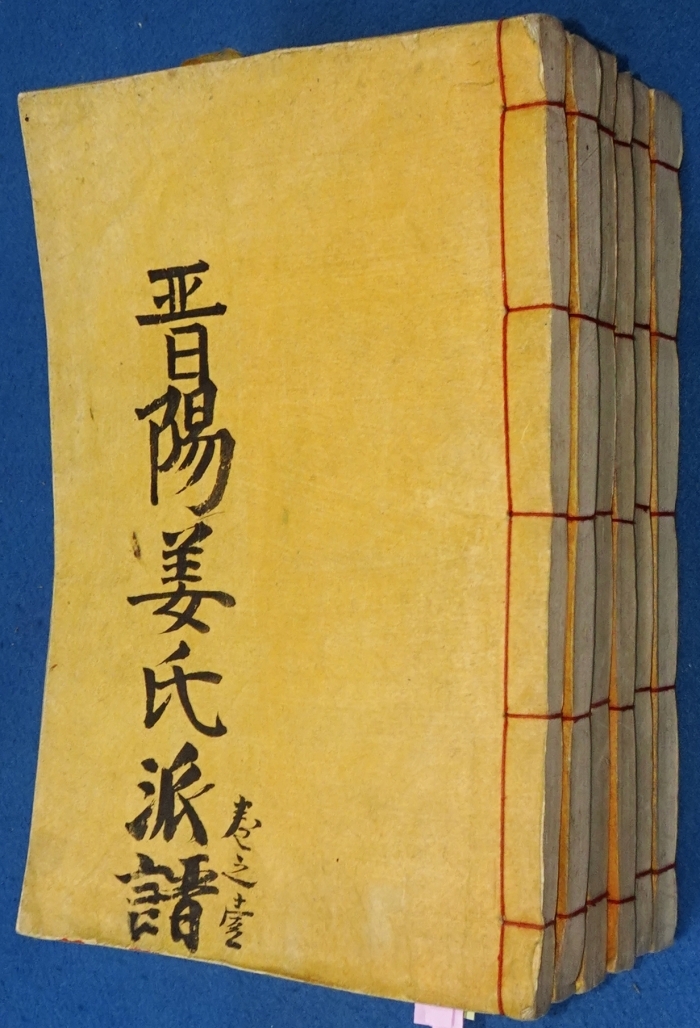 晋陽姜氏派譜
卷之壹